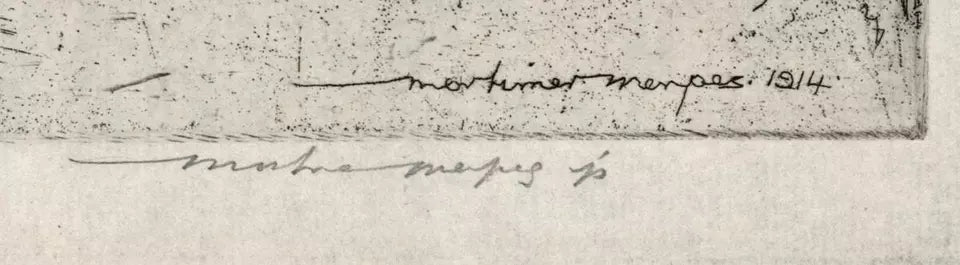 mortimer menpes. 1914.
menpes